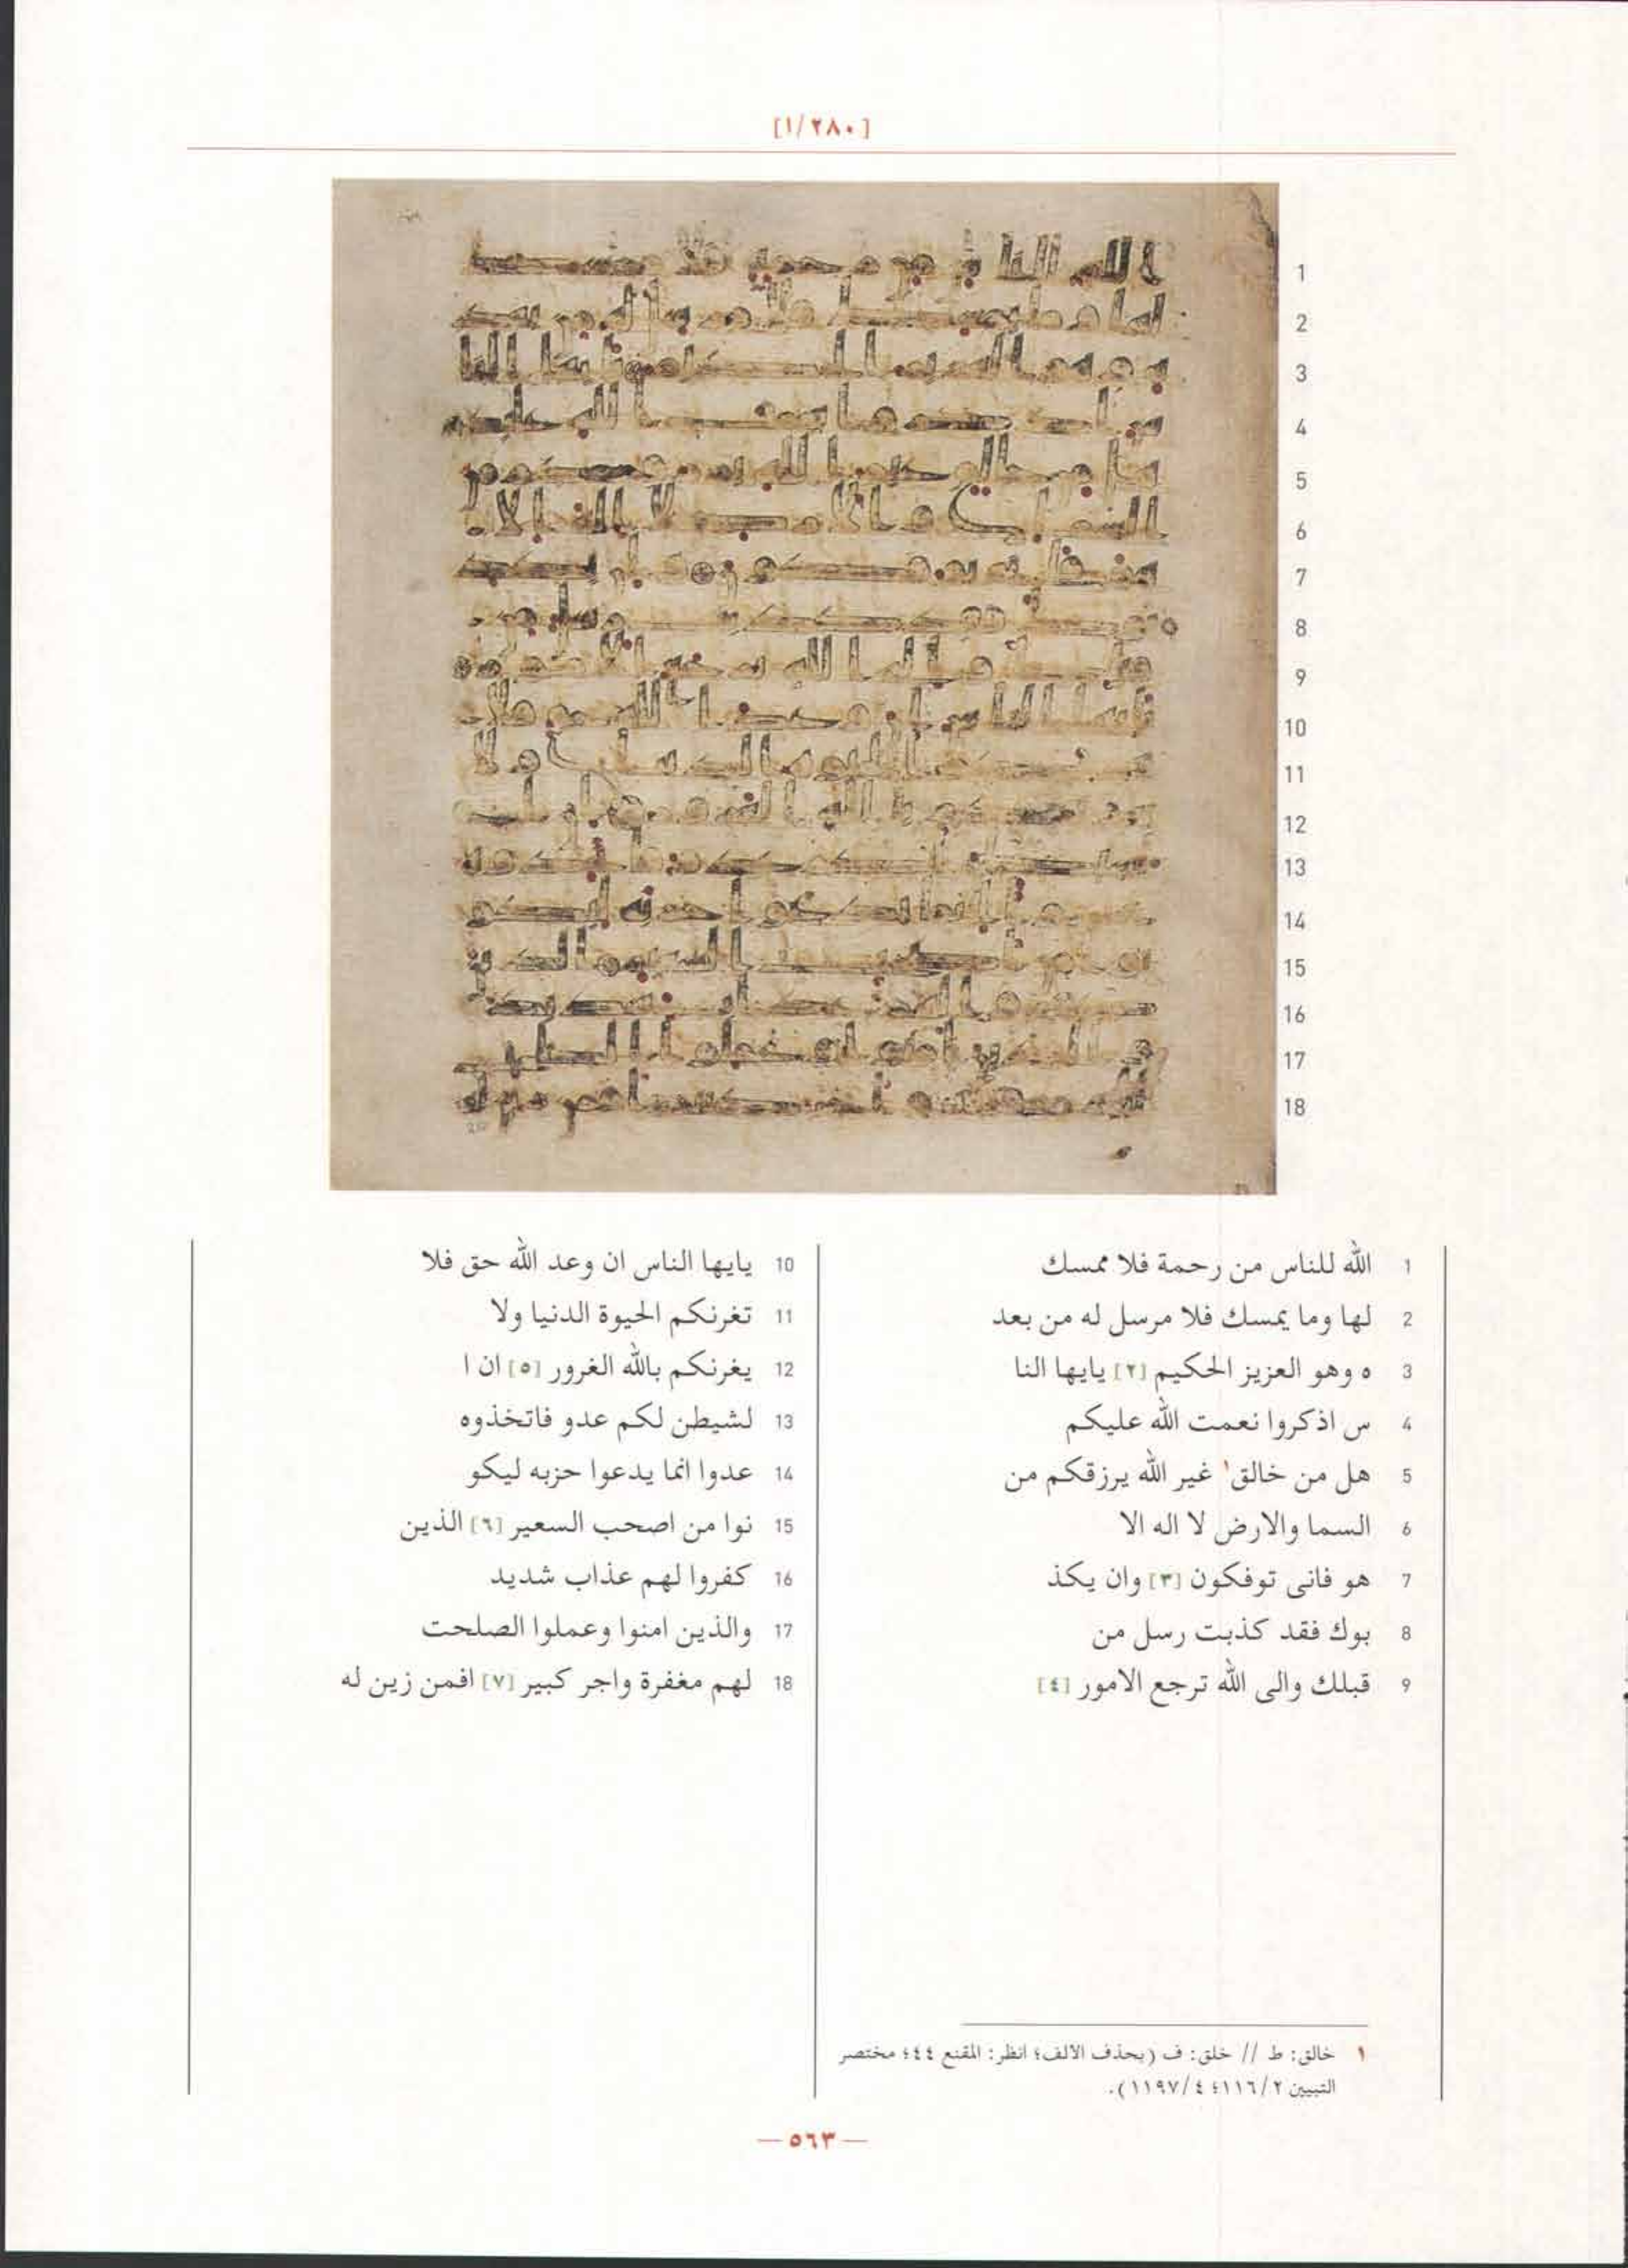 [٢٨٠/١]
1 الله للناس من رحمة فلا ممسك
2 لها وما يمسك فلا مرسل له من بعد
3 ه وهو العزيز الحكيم [٢] يايها النا
4 س اذكروا نعمت الله عليكم
5 هل من خالق١ غير الله يرزقكم من
6 السما والارض لا اله الا
7 هو فانى توفكون [٣] وان يكذ
8 بوك فقد كذبت رسل من
9 قبلك والى الله ترجع الامور [٤]
10 يايها الناس ان وعد الله حق فلا
11 تغرنكم الحيوة الدنيا ولا
12 يغرنكم بالله الغرور [٥] ان ا
13 لشيطن لكم عدو فاتخذوه
14 عدوا انما يدعوا حزبه ليكو
15 نوا من اصحب السعير [٦] الذين
16 كفروا لهم عذاب شديد
17 والذين امنوا وعملوا الصلحت
18 لهم مغفرة واجر كبير [٧] افمن زين له
١ خالق: ط // خلق: ف (بحذف الالف؛ انظر: المقنع ٤٤؛ مختصر
التبيين ١١٦/٢؛ ١١٩٧/٤).
— ٥٦٣ —